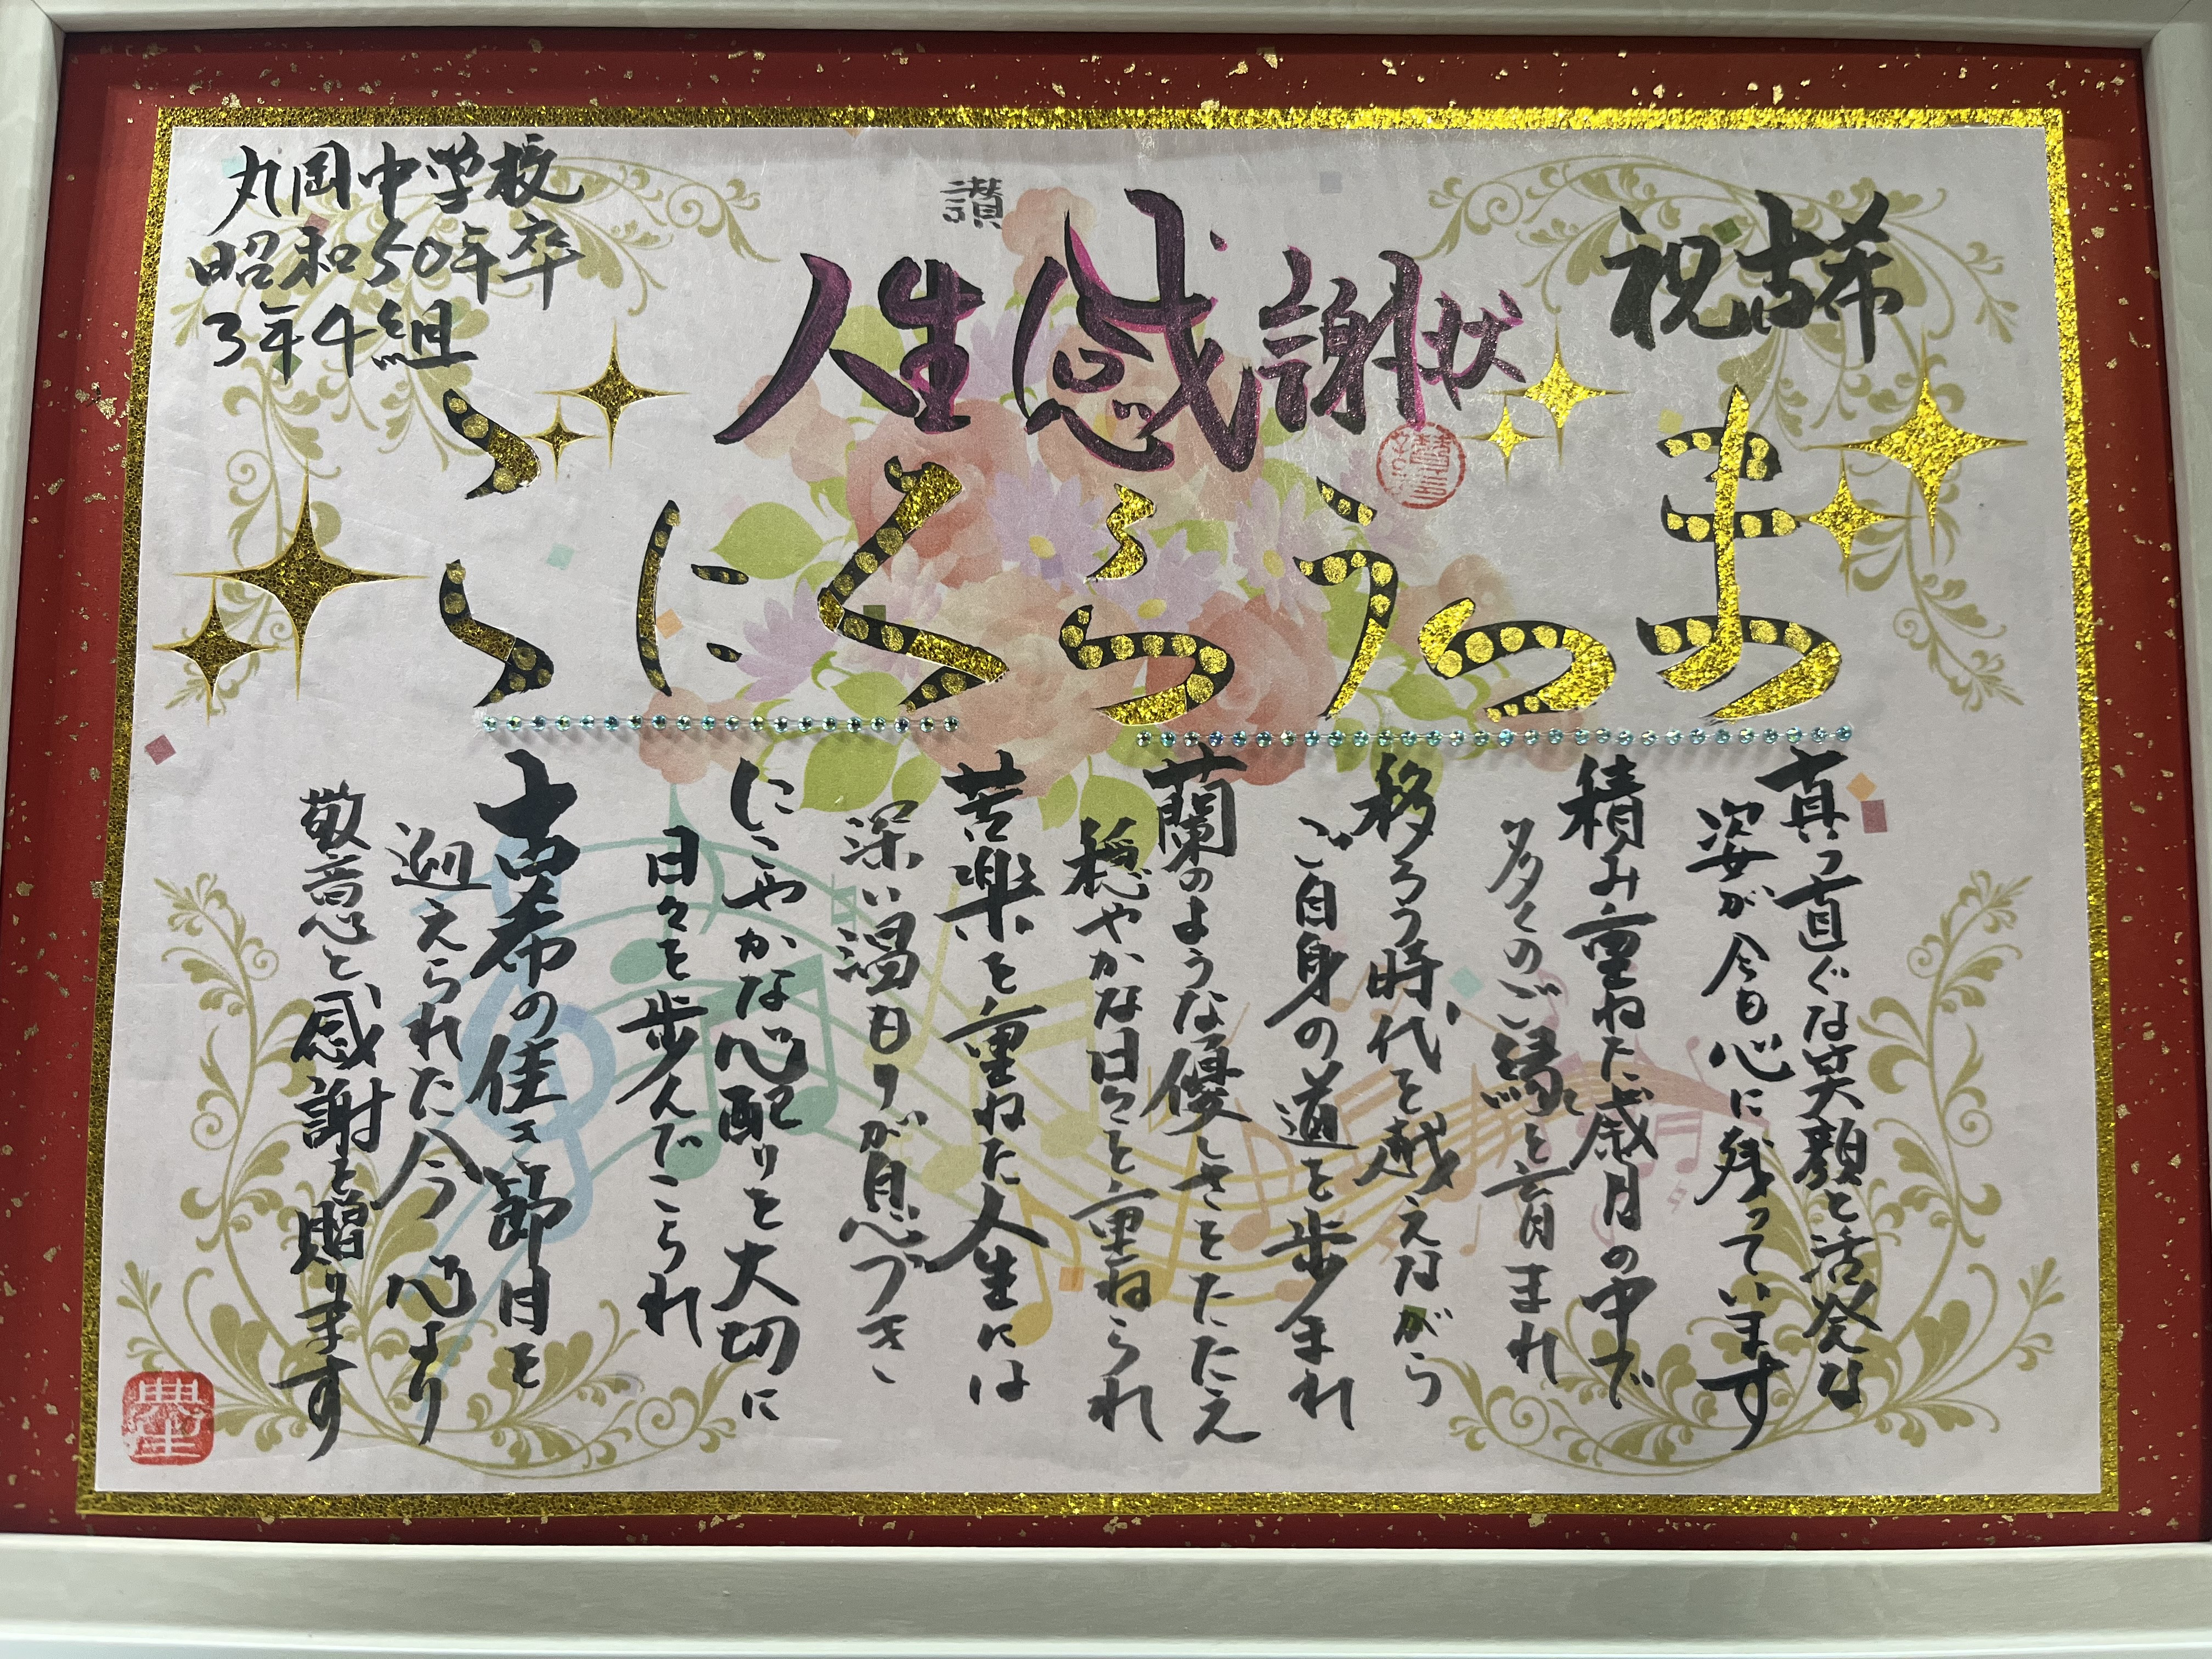 祝古希
讃
人生感謝状
丸岡中学校
昭和50年卒
3年4組
まつうらくにこ
真っ直ぐな笑顔と活発な
姿が今も心に残っています
積み重ねた歳月の中で
多くのご縁を育まれ
移ろう時代を越えながら
ご自身の道を歩まれ
蘭のような優しさをたたえ
穏やかな日々を重ねられ
苦楽を重ねた人生には
深い温もりが息づき
にこやかな心配りを大切に
日々を歩んでこられ
古希の佳き節目を
迎えられた今 心より
敬意と感謝を贈ります